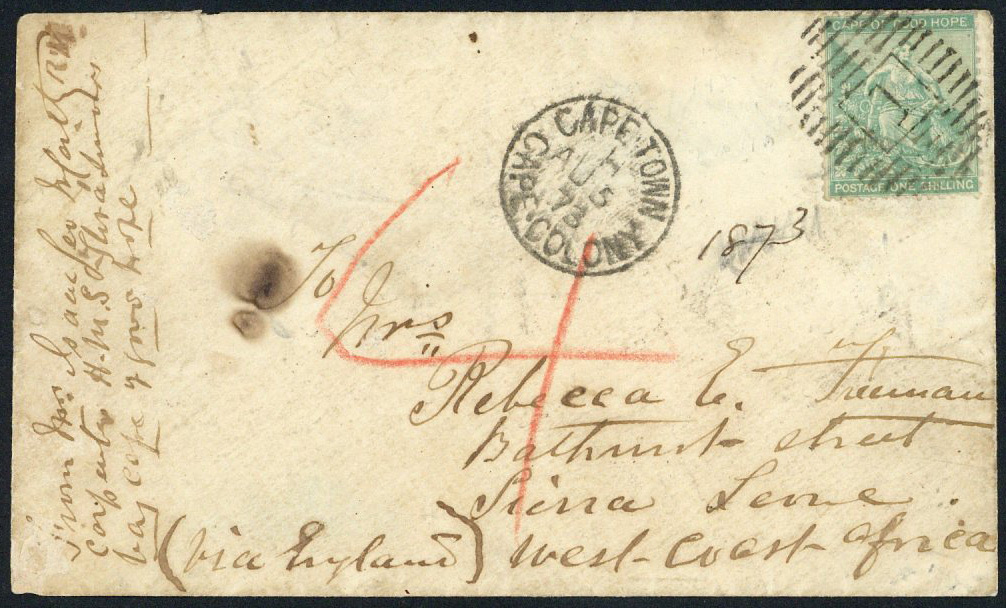 CAPE OF GOOD HOPE
POSTAGE ONE SHILLING
1
CAPE TOWN
CAPE COLONY
AU 5
73
1873
4
To
Mrs
Rebecca E. Freeman
Bathurst street
Sierra Leone.
West-coast Africa
(via England)
From Mr Isaac Leo
carpenter H.M.S
bay cape of good hope